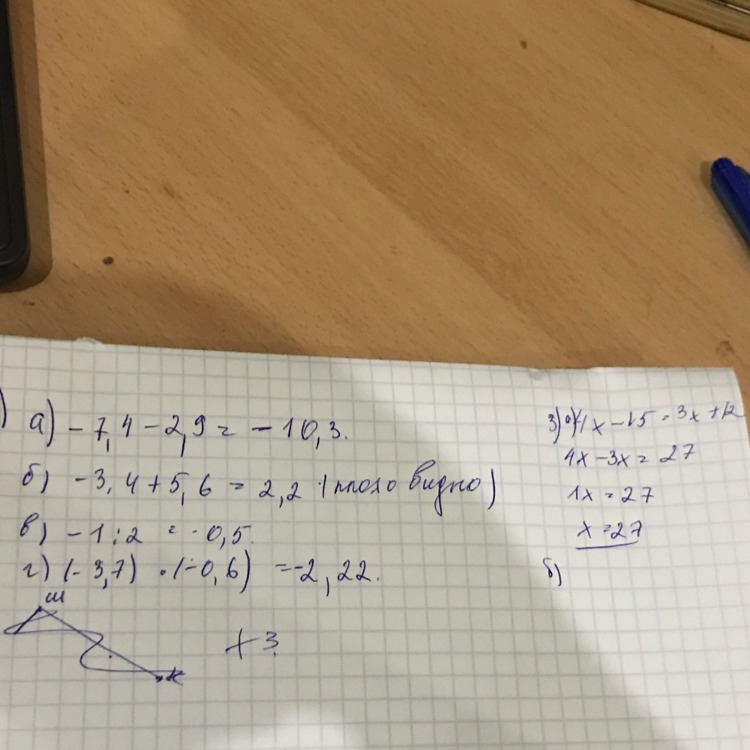 ) а) -7,4 - 2,9 = -10,3.
б) -3,4 + 5,6 = 2,2 (плохо видно)
в) -1 : 2 = -0,5.
г) (-3,7) · (-0,6) = -2,22.
ш
к
+3.
3) а) 4x - 15 = 3x + 12
4x - 3x = 27
1x = 27
x = 27
б)